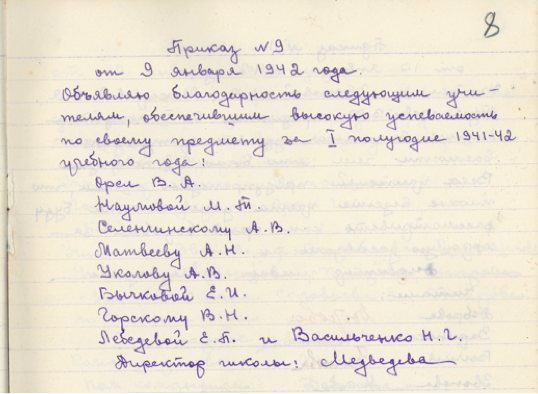 8
Приказ № 9
от 9 января 1942 года.
Объявляю благодарность следующим учи-
телям, обеспечившим высокую успеваемость
по своему предмету за I полугодие 1941-42
учебного года:
Орел В. А.
Наумовой М. Т.
Селенгинскому А. В.
Матвееву А. Н.
Уколову А. В.
Бычковой Е. И.
Горскому В. Н.
Лебедевой Е. П. и Васильченко Н. Г.
Директор школы: Медведева